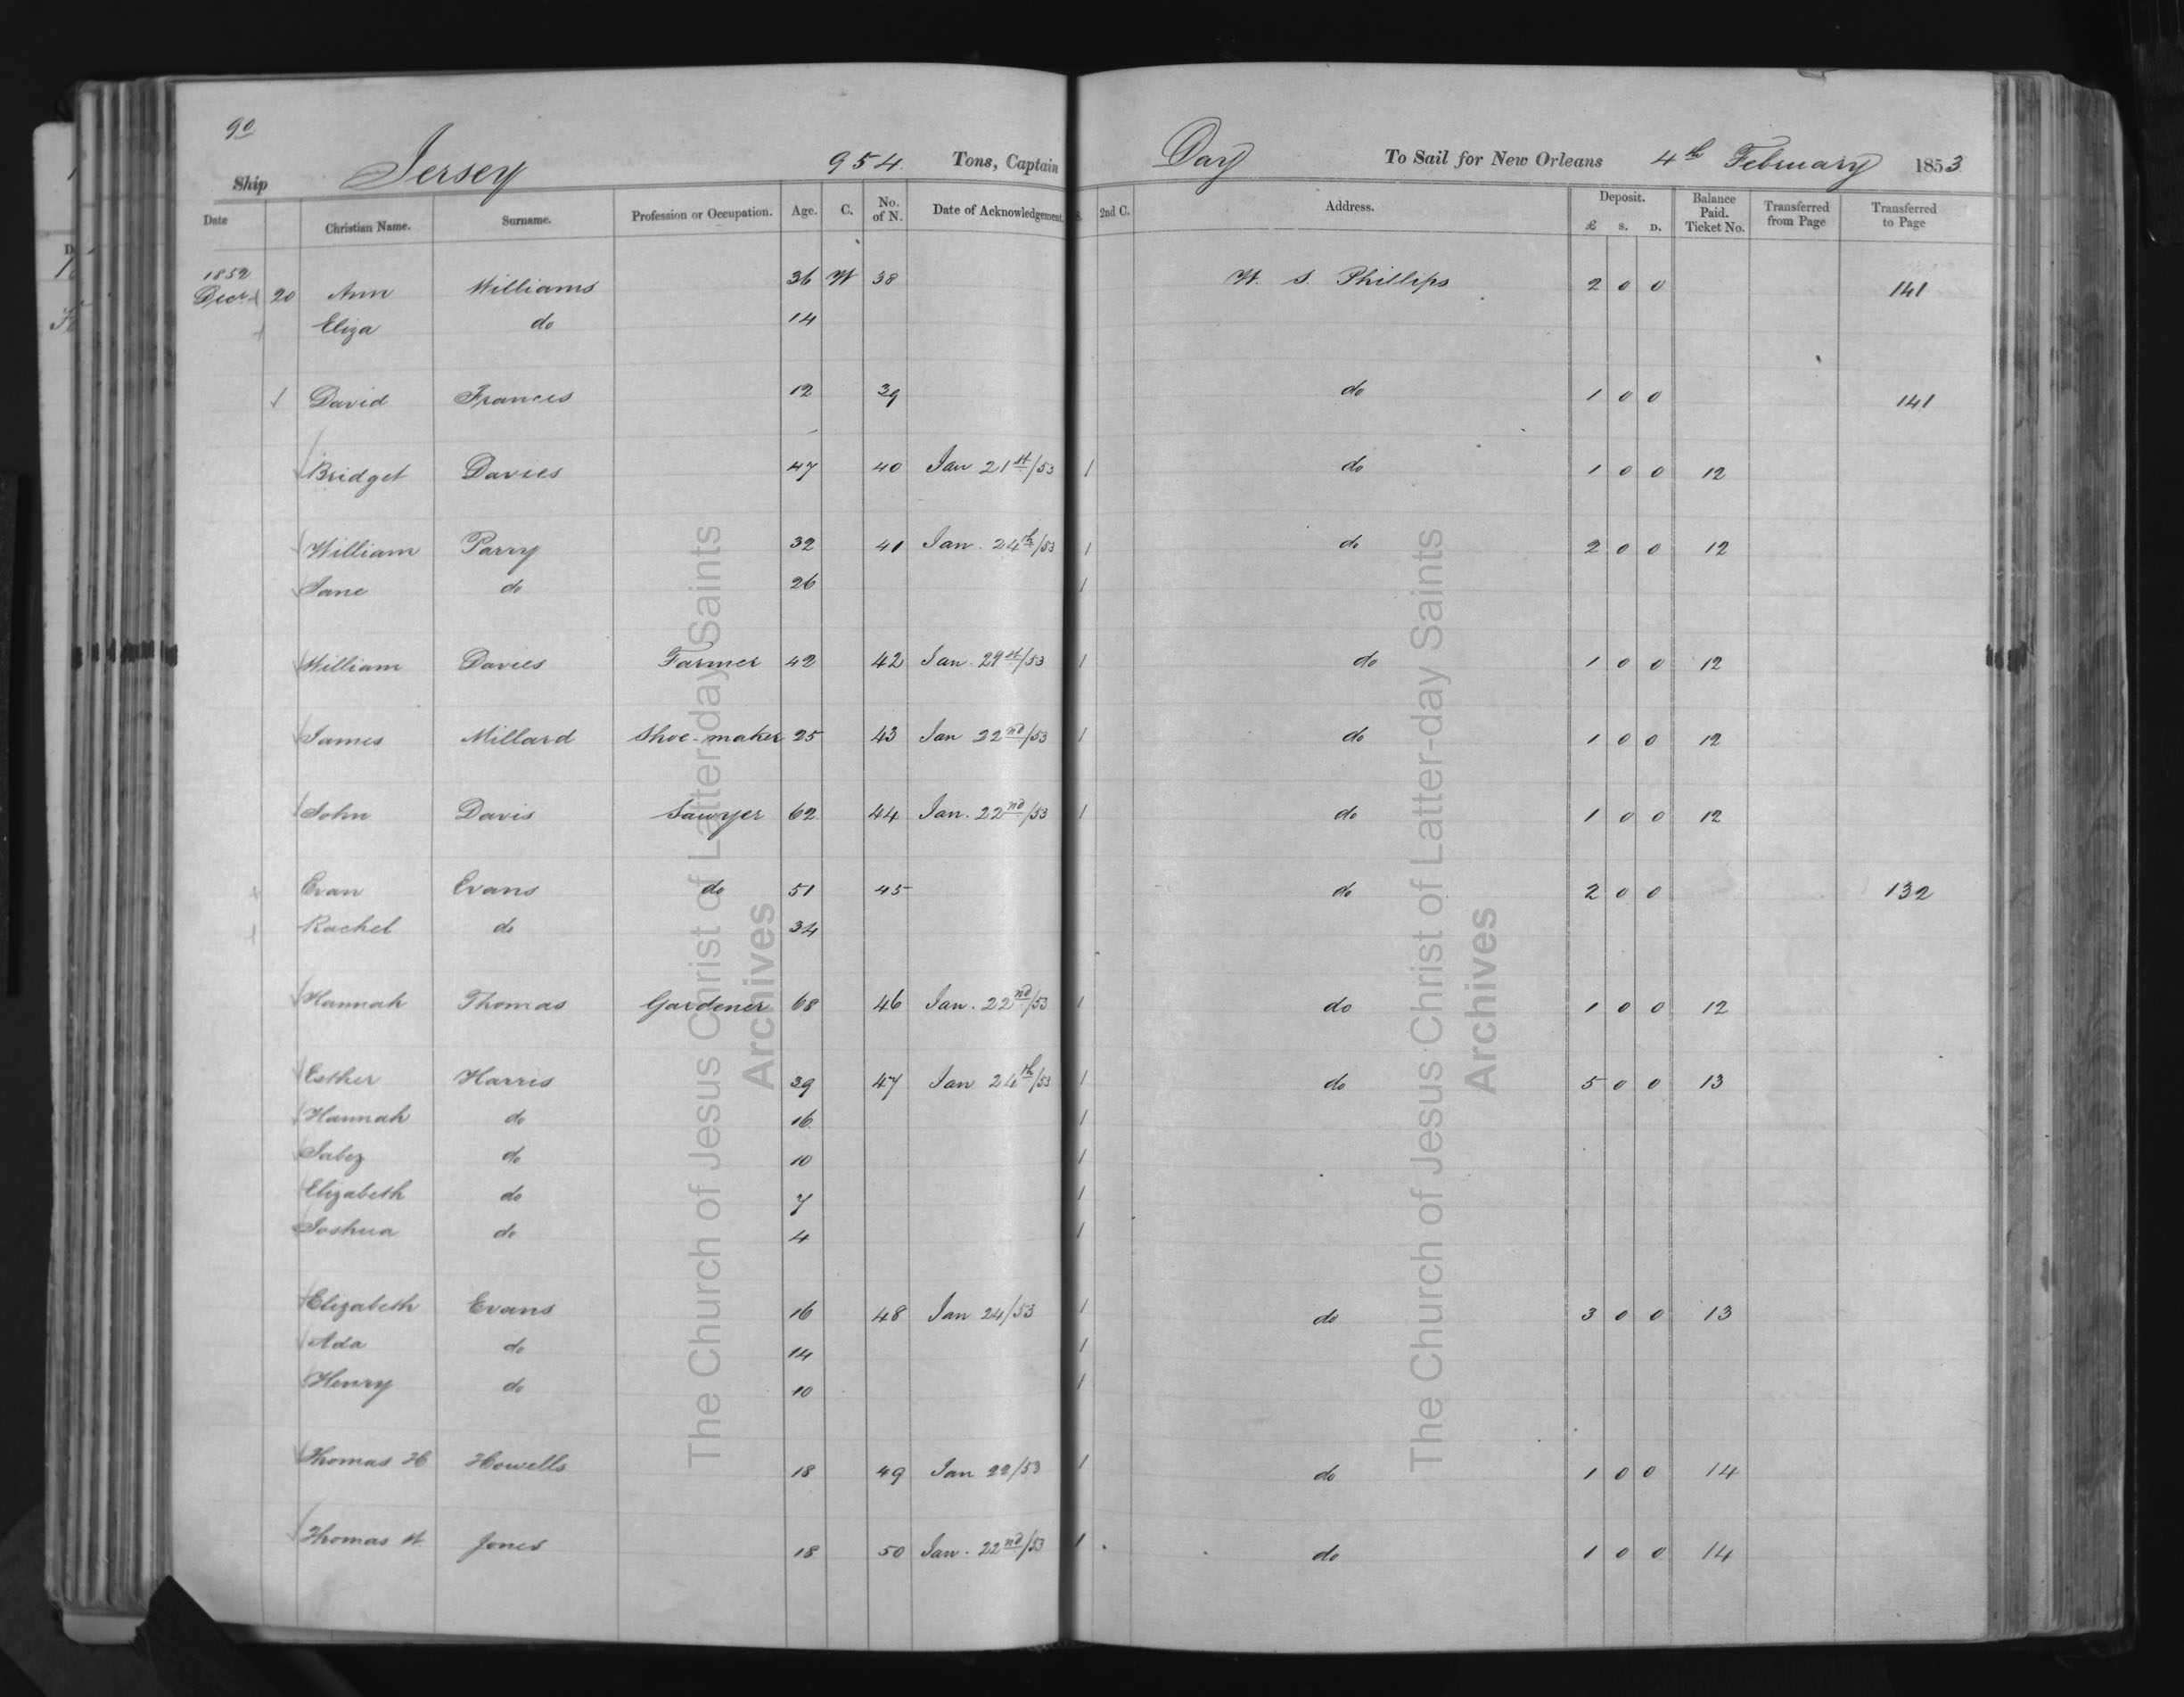 90
Ship Jersey 954 Tons, Captain Day To Sail for New Orleans 4th February 1853
Date Christian Name. Surname. Profession or Occupation. Age. C. No. of N. Date of Acknowledgement. 2nd C. Address. Deposit. £ S. D. Balance Paid. Ticket No. Transferred from Page Transferred to Page
1852
Decr 20 Ann Williams 36 W 38 W. S. Phillips 2 0 0 141
Eliza do 14
David Frances 12 39 do 1 0 0 141
Bridget Davies 47 40 Jan 21st/53 1 do 1 0 0 12
William Parry 32 41 Jan. 24th/53 1 do 2 0 0 12
Jane do 26 1
William Davies Farmer 42 42 Jan. 29st/53 1 do 1 0 0 12
James Millard Shoe-maker 25 43 Jan 22nd/53 1 do 1 0 0 12
John Davis Sawyer 62 44 Jan. 22nd/53 1 do 1 0 0 12
Evan Evans do 51 45 do 2 0 0 132
Rachel do 34
Hannah Thomas Gardener 68 46 Jan. 22nd/53 1 do 1 0 0 12
Esther Harris 39 47 Jan 24th/53 1 do 5 0 0 13
Hannah do 16 1
Jabez do 10 1
Elizabeth do 7 1
Joshua do 4 1
Elizabeth Evans 16 48 Jan 24/53 1 do 3 0 0 13
Ada do 14 1
Henry do 10 1
Thomas H Howells 18 49 Jan 22/53 1 do 1 0 0 14
Thomas W Jones 18 50 Jan. 22nd/53 1 do 1 0 0 14
The Church of Jesus Christ of Latter-day Saints
Archives
The Church of Jesus Christ of Latter-day Saints
Archives